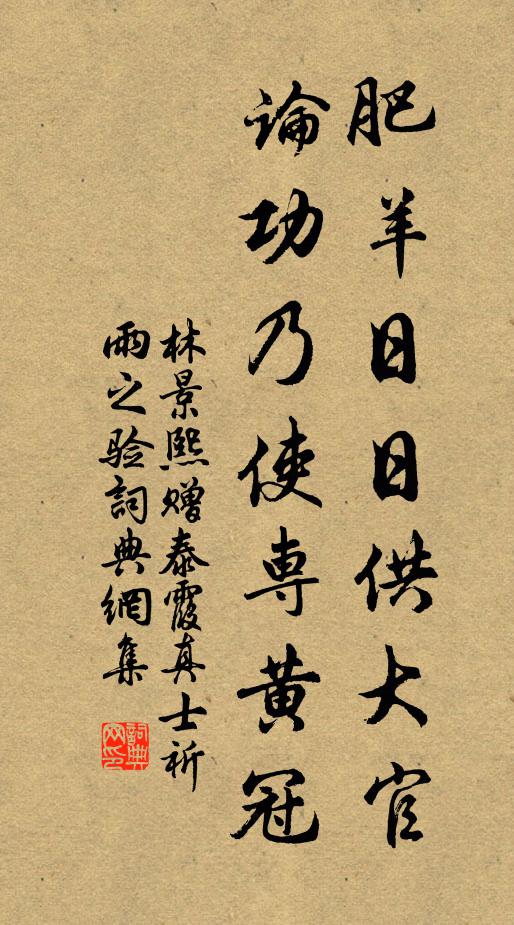 肥羊日日供大官
論功乃使専黄冠
林景熙贈泰霞真士祈
雨之验詞典網集
詞典网印